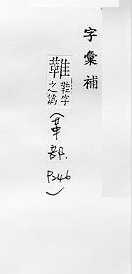 字彙補
雜字
之譌
(革部.
P346)